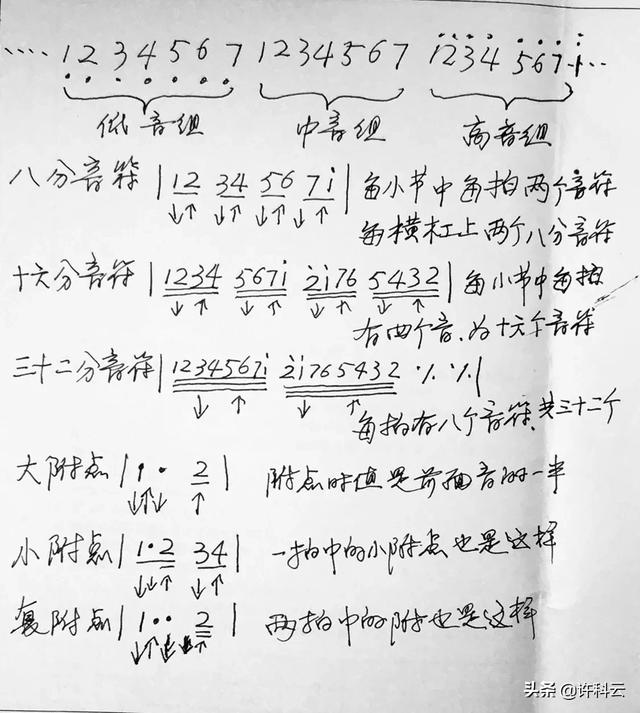 ···· 1 2 3 4 5 6 7 1 2 3 4 5 6 7 1 2 3 4 5 6 7 i ··
低音组 中音组 高音组
八分音符 | 12 34 56 7i | 每小节中每拍两个音符
↓↑ ↓↑ ↓↑ ↓↑ 每横杠上两个八分音符
十六分音符 | 1234 567i 2i76 5432 | 每小节中每拍
↓ ↑ ↓ ↑ ↓ ↑ ↓ ↑ 有四个音.为十六个音符
三十二分音符 | 1234567i 2i765432 ٪ ٪ |
↓ ↑ ↓ ↑ 每拍有八个音符.共三十二个
大附点 | 1 · 2 | 附点时值是前面音的一半
↓↑↓ ↑
小附点 | 1·2 34 | 一拍中的小附点也是这样
↓↓↑ ↓↑
复附点 | 1·· 2 | 两拍中的附也是这样
头条 @许科云